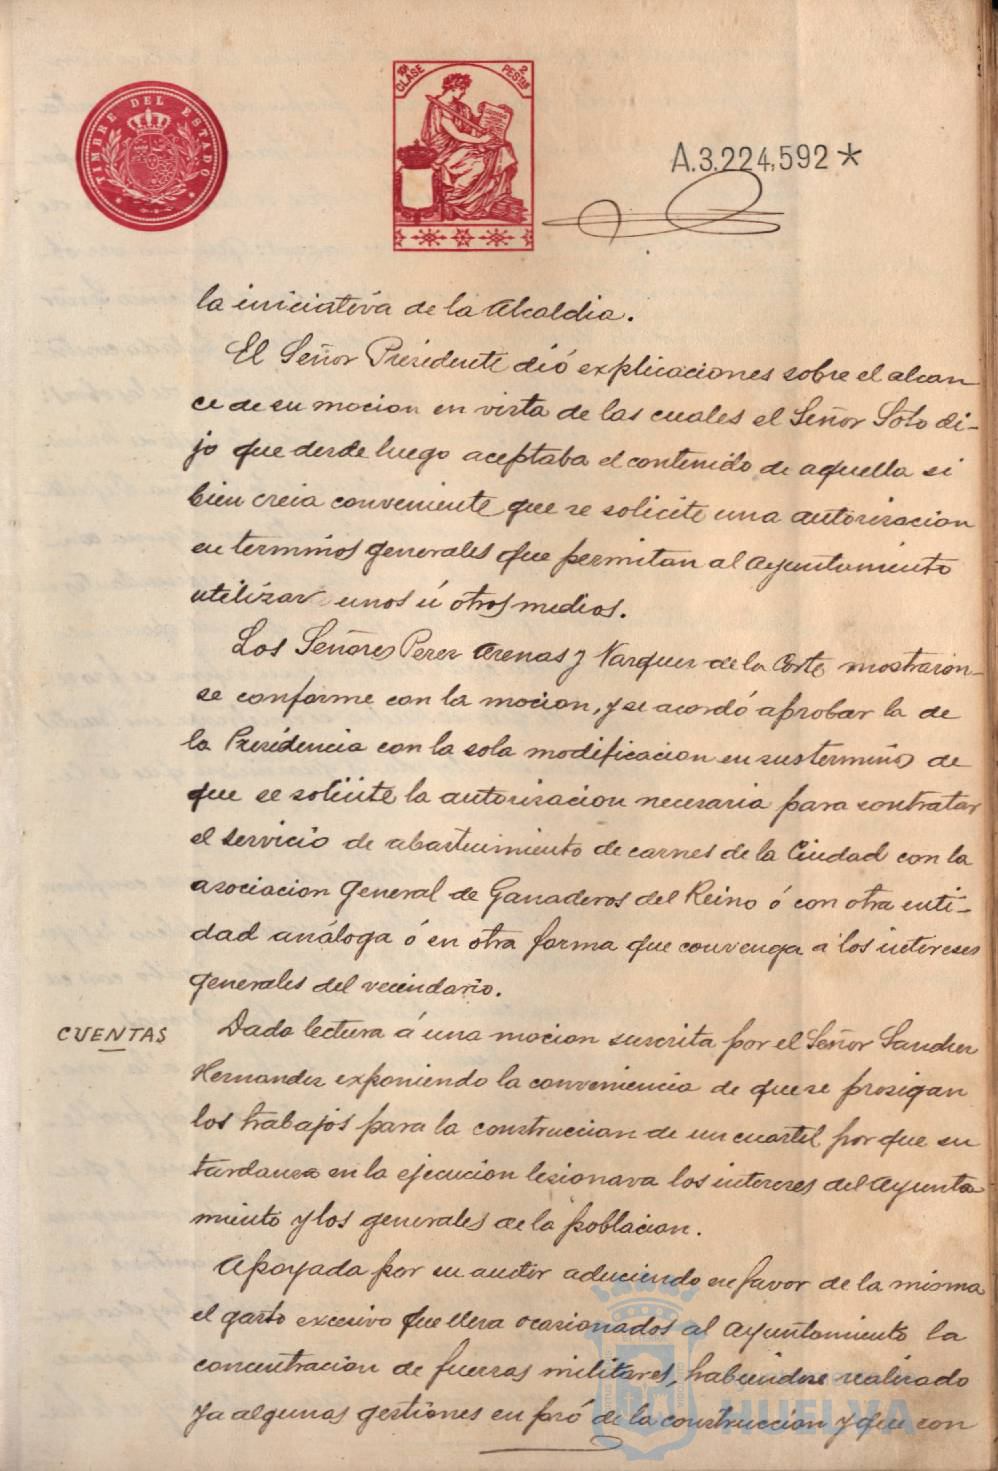 TIMBRE DEL ESTADO
10ª CLASE 2 PESTAS
A.3.224,592*
la iniciativa de la Alcaldia.
El Señor Presidente dió explicaciones sobre el alcan
ce de su mocion en vista de las cuales el Señor Soto di-
jo que desde luego aceptaba el contenido de aquella si
bien creia conveniente que se solicite una autorisacion
en terminos generales que permitan al Ayuntamiento
utilizar unos ú otros medios.
Los Señores Perez Arenas y Vazquez de la Corte mostraron-
se conforme con la mocion, y se acordó aprobar la de
la Presidencia con la sola modificacion en sus terminos de
que se solicite la autorisacion necesaria para contratar
el servicio de abastecimiento de carnes de la Ciudad con la
asociacion General de Ganaderos del Reino ó con otra enti-
dad análoga ó en otra forma que convenga a los intereses
generales del vecindario.
CUENTAS
Dada lectura á una mocion suscrita por el Señor Sanchez
Hernandez exponiendo la conveniencia de que se prosigan
los trabajos para la construccion de un cuartel por que su
tardanza en la ejecucion lesionava los intereses del Ayunta
miento y los generales de la poblacion.
Apoyada por su autor aduciendo en favor de la misma
el gasto excesivo que lleva ocasionados al Ayuntamiento la
concentracion de fuerzas militares, habiendose realizado
ya algunas gestiones en pró de la construccion y que con
HUELVA